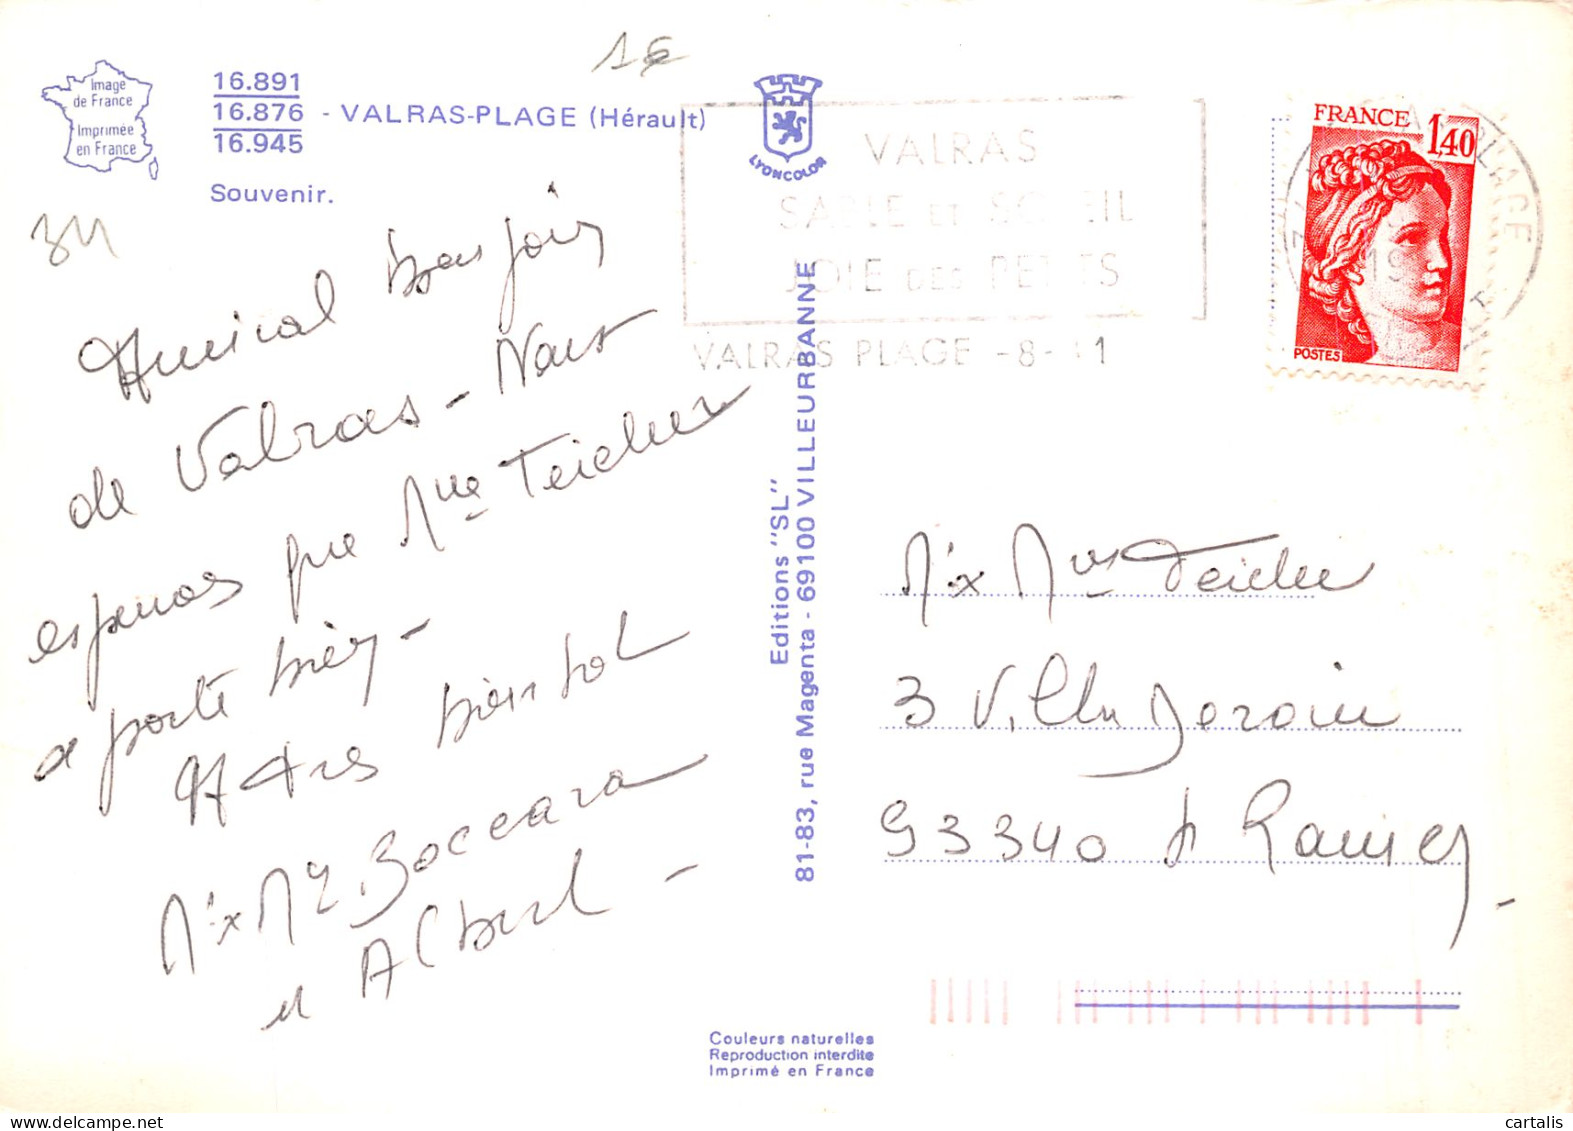 1€
Image
de France
Imprimée
en France
16.891
16.876 - VALRAS-PLAGE (Hérault)
16.945
Souvenir.
34
LYONCOLOR
VALRAS
SABLE ET SOLEIL
JOIE DES PETITS
VALRAS PLAGE -8-
PLAGE
FRANCE
1,40
POSTES
Amical bonjour
de Valras - Nous
espérons que Mme Teicher
se porte bien -
A très bientôt
Mr x Me Boccara
et Albert -
Editions "SL"
81-83, rue Magenta - 69100 VILLEURBANNE
Mr x Mme Teicher
3 Villa
93340 Raincy -
Couleurs naturelles
Reproduction interdite
Imprimé en France
cartalis